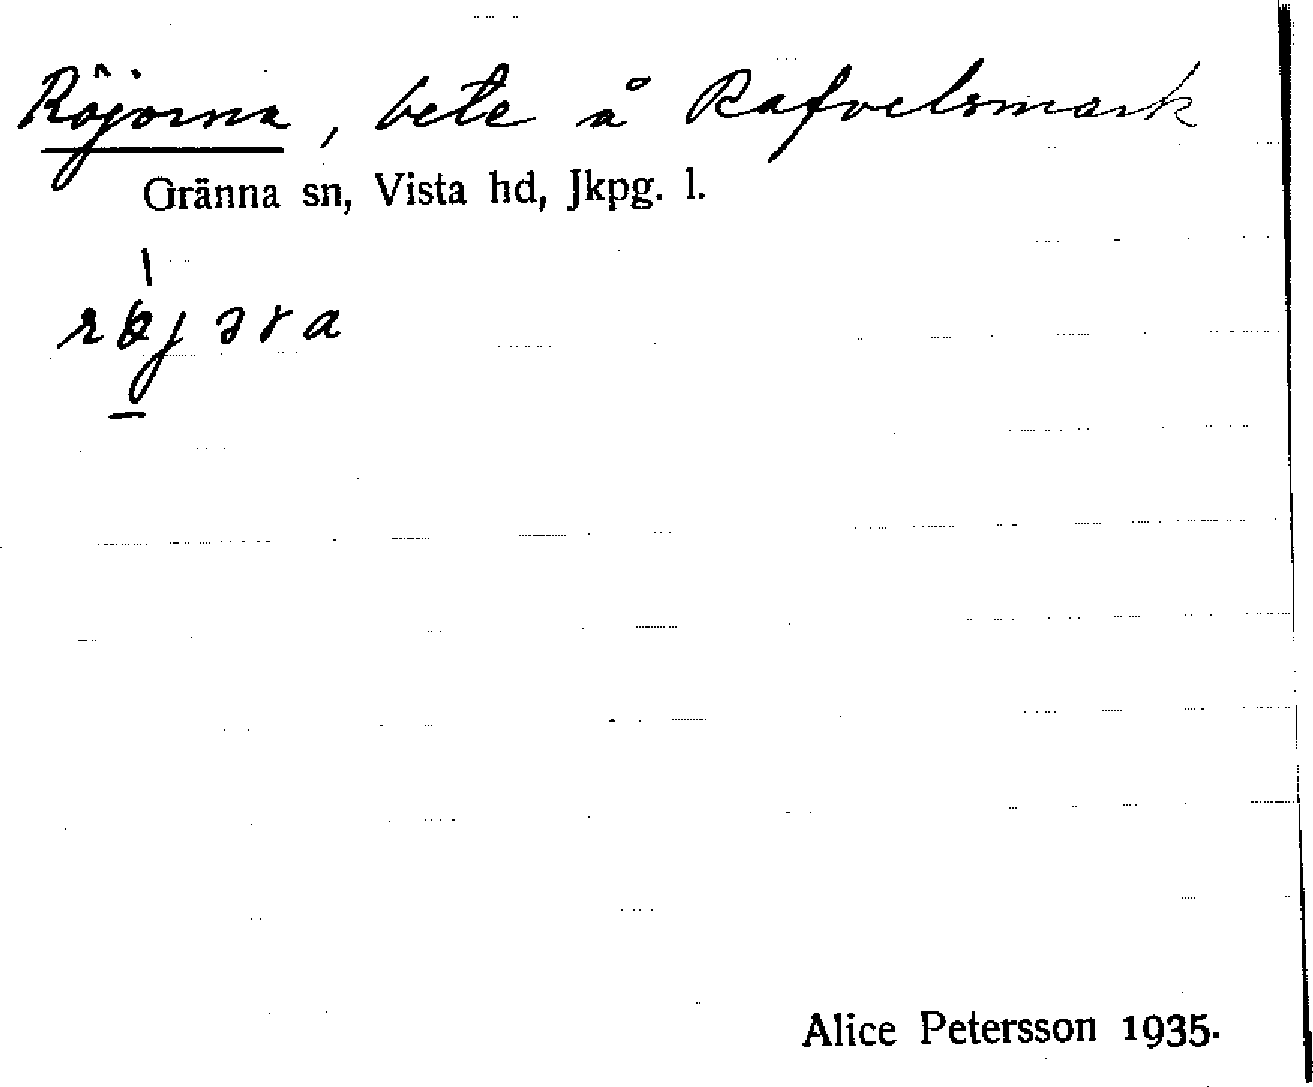 Röjorna, bete å Rafvelsmark
Gränna sn, Vista hd, Jkpg. l.
Alice Petersson 1935.